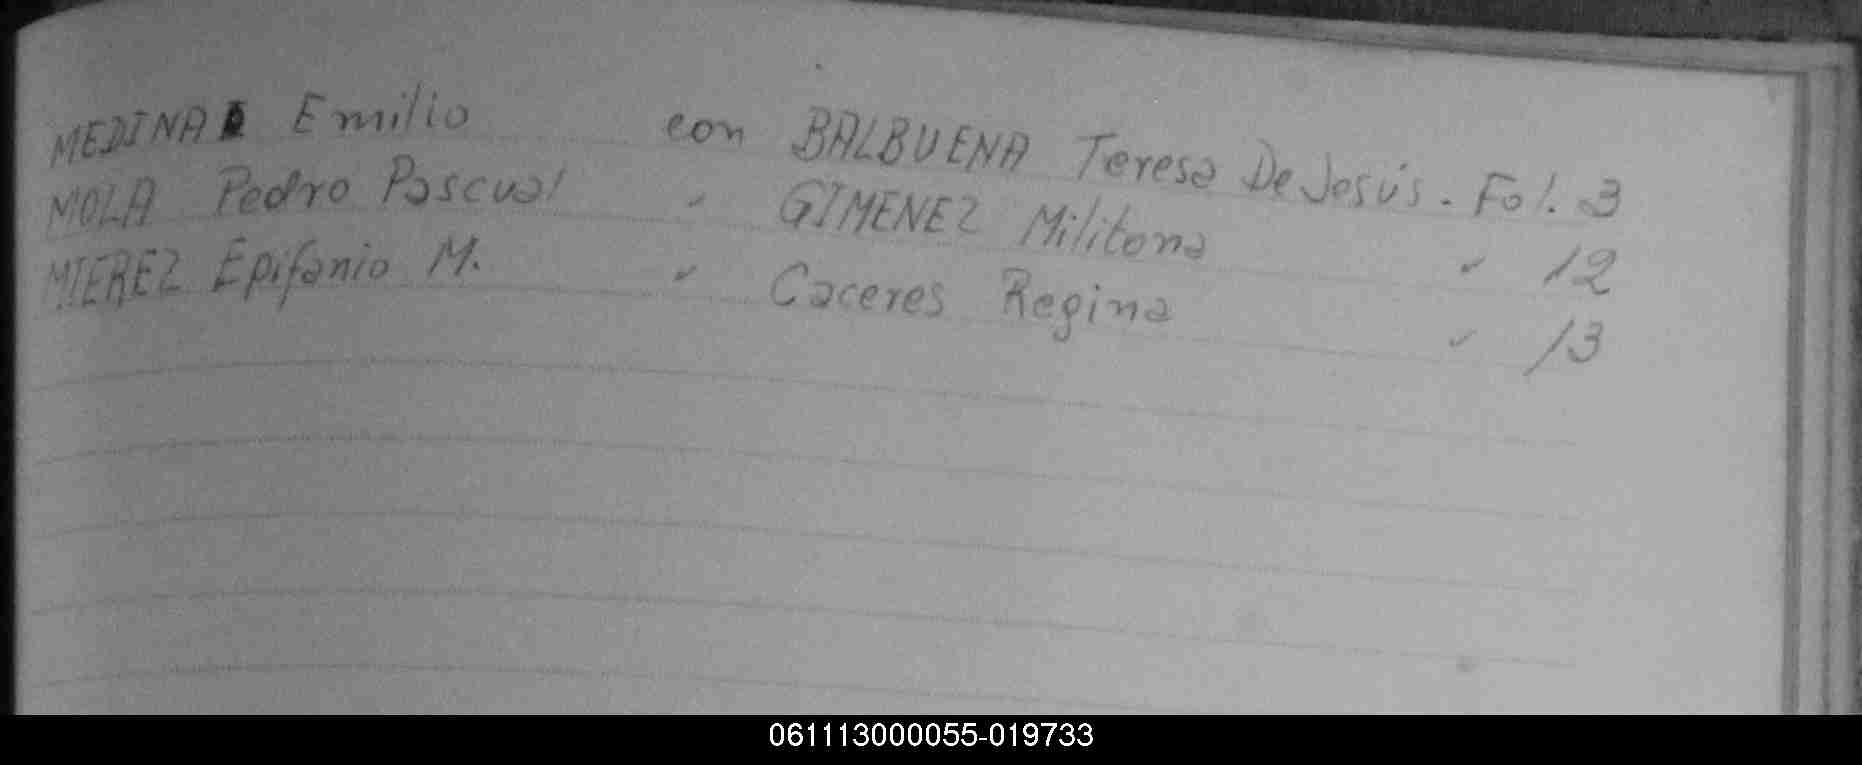 MEDINA Emilio con BALBUENA Teresa De Jesús. Fol. 3
MOLA Pedro Pascual " GIMENEZ Militona " 12
MIEREZ Epifanio M. " Caceres Regina " 13
061113000055-019733